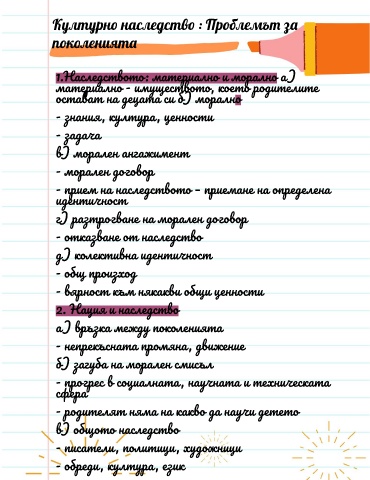 Културно наследство : Проблемът за
поколенията
1.Наследството: материално и морално а)
материално - имуществото, което родителите
остават на децата си б) морално
- знания, култура, ценности
- задача
в) морален ангажимент
- морален договор
- прием на наследството – приемане на определена
идентичност
г) разтрогване на морален договор
- отказване от наследство
д) колективна идентичност
- общ произход
- вярност към някакви общи ценности
2. Нация и наследство
а) връзка между поколенията
- непрекъсната промяна, движение
б) загуба на морален смисъл
- прогрес в социалната, научната и техническата
сфера
- родителят няма на какво да научи детето
в) общото наследство
- писатели, политици, художници
- обреди, култура, език